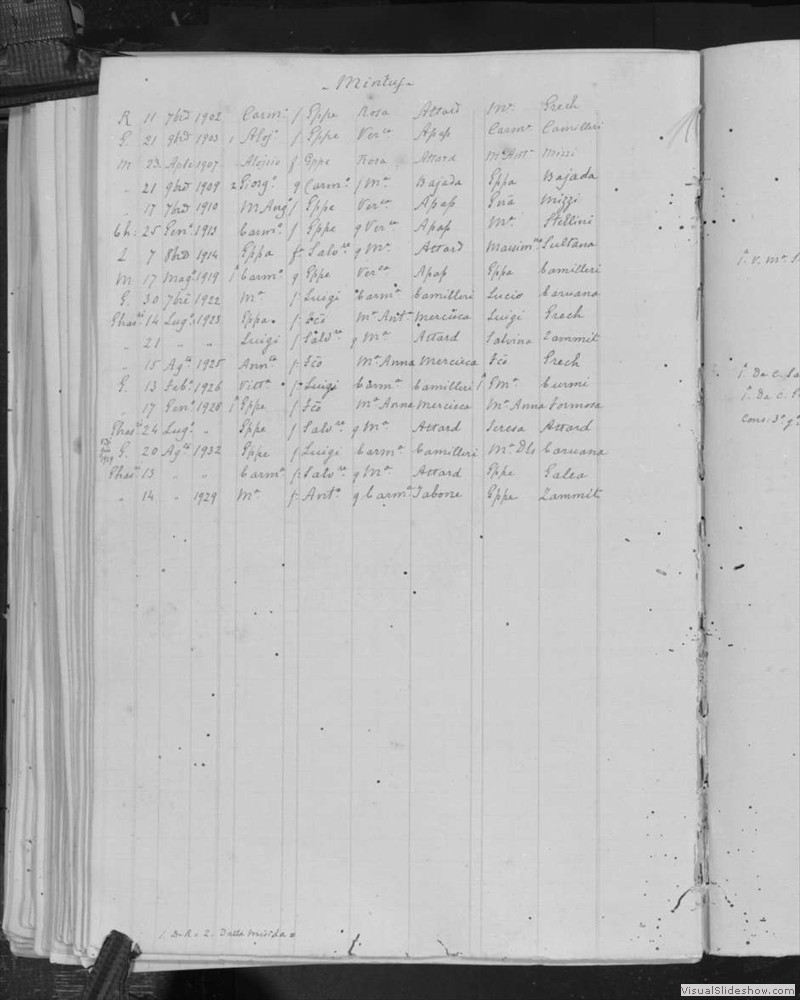 - Mintuf -
R 11 7bre 1902 Carmo f Eppe Rosa Attard Ma Grech
G. 21 9bre 1903 1 Aloj. f Eppe Verca Apap Carma Camilleri
M 23 Aple 1907 Alojsio f Eppe Rosa Attard Ma Anta Missi
" 21 9bre 1909 2 Giorgo g Carmo f Ma Bajada Eppa Bajada
" 17 7bre 1910 M Anga f Eppe Verca Apap Gna Mizzi
Ch: 25 Geno 1913 Carmo f Eppe g Verca Apap Ma Stellini
L 7 8bre 1914 Eppa f Salvre g Ma Attard Massima Sultana
M 17 Mago 1919 1 Carmo g Eppe Verca Apap Eppa Camilleri
G. 30 7bre 1922 Ma f Luigi Carma Camilleri Lucia Caruana
Ghasri 14 Lugo 1923 Eppa f Fco Ma Anta Mercieca Luigi Grech
" 21 " " Luigi f Salvre g Ma Attard Salvina Zammit
" 15 Agto 1925 Annta f Fco Ma Anna Mercieca Fco Grech
G. 13 Febo 1926 Vitta f Luigi Carma Camilleri 1 Gma Curmi
" 17 Geno 1928 1 Eppe f Fco Ma Anna Mercieca Ma Anna Formosa
Ghasri 24 Lugo " Eppa f Salvre g Ma Attard Teresa Attard
G. 20 Agto 1932 Eppe f Luigi Carma Camilleri Ma Dls Caruana
Ghasri 13 " " Carma f Salvre g Ma Attard Eppe Galea
" 14 " 1929 Ma f Anto g Carma Tabone Eppe Zammit
1. v. Ma
1. Da C.
1. Da C.
Cons: 3o go
1. D. R. = 2. Dalla =
VisualSlideshow.com